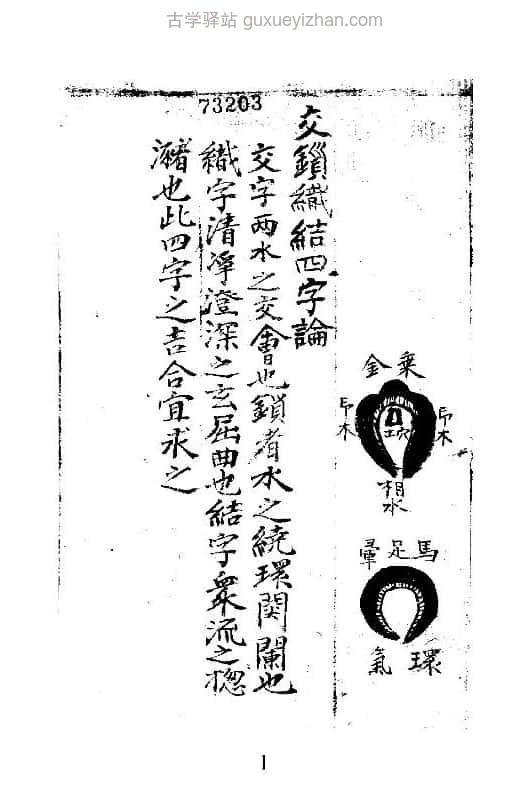 古学驿站 guxueyizhan.com
73203
乗金
印木
印木
土穴
相水
馬足暈
環氣
交鎖織結四字論
交字两水之交會也鎖者水之繞環関闌也
織字清淨澄深之玄屈曲也結字衆流之總
瀦也此四字之吉合宜求之
1